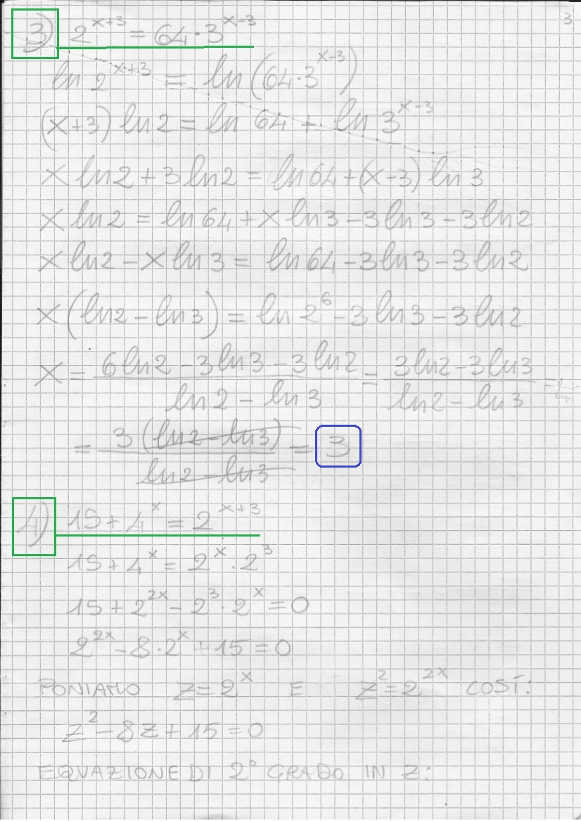 3
3) 2^(x+3) = 64·3^(x-3)
ln 2^(x+3) = ln(64·3^(x-3))
(x+3) ln2 = ln 64 + ln 3^(x-3)
x ln2 + 3 ln2 = ln64 + (x-3) ln 3
x ln2 = ln64 + x ln3 - 3 ln3 - 3 ln2
x ln2 - x ln3 = ln64 - 3 ln3 - 3 ln2
x (ln2 - ln3) = ln 2^6 - 3 ln3 - 3 ln2
x = (6 ln2 - 3 ln3 - 3 ln2)/(ln2 - ln3) = (3 ln2 - 3 ln3)/(ln2 - ln3) =
= 3 (ln2 - ln3)/(ln2 - ln3) = 3
4) 15 + 4^x = 2^(x+3)
15 + 4^x = 2^x · 2^3
15 + 2^(2x) - 2^3 · 2^x = 0
2^(2x) - 8·2^x + 15 = 0
PONIAMO z = 2^x E z^2 = 2^(2x) COSÌ:
z^2 - 8z + 15 = 0
EQUAZIONE DI 2° GRADO IN z: